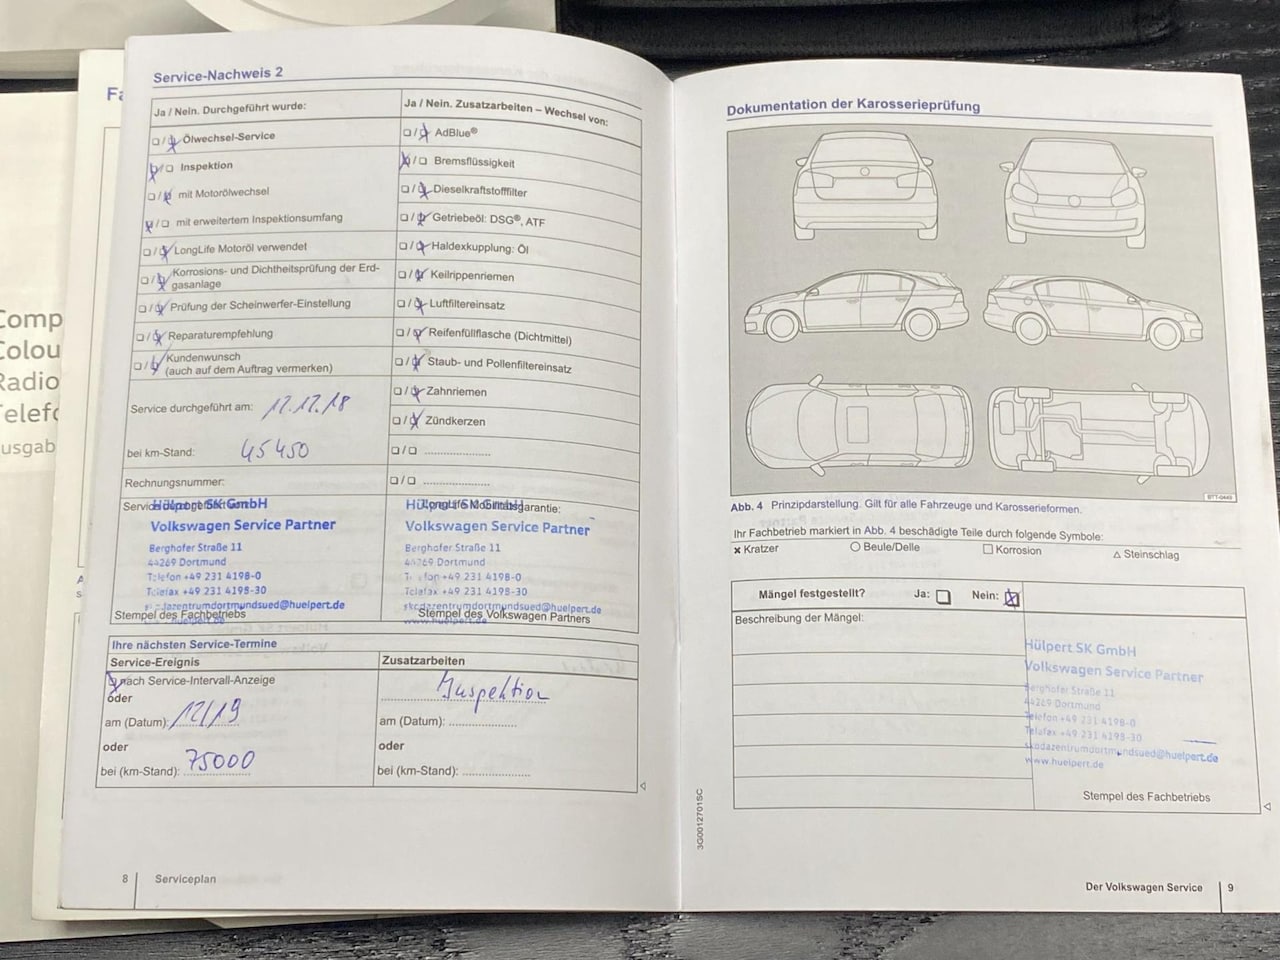 Comp
Colou
Radio
Telefo
usgab
Fa
Service-Nachweis 2
Ja / Nein. Durchgeführt wurde:
Ölwechsel-Service
Inspektion
mit Motorölwechsel
mit erweitertem Inspektionsumfang
LongLife Motoröl verwendet
Korrosions- und Dichtheitsprüfung der Erd-
gasanlage
Prüfung der Scheinwerfer-Einstellung
Reparaturempfehlung
Kundenwunsch
(auch auf dem Auftrag vermerken)
Service durchgeführt am: 12.12.18
bei km-Stand: 45450
Rechnungsnummer:
Hülpert SK GmbH
Volkswagen Service Partner
Berghofer Straße 11
44269 Dortmund
Telefon +49 231 4198-0
Telefax +49 231 4198-30
skodazentrumdortmundsued@huelpert.de
Stempel des Fachbetriebs
Ja / Nein. Zusatzarbeiten – Wechsel von:
AdBlue®
Bremsflüssigkeit
Dieselkraftstofffilter
Getriebeöl: DSG®, ATF
Haldexkupplung: Öl
Keilrippenriemen
Luftfiltereinsatz
Reifenfüllflasche (Dichtmittel)
Staub- und Pollenfiltereinsatz
Zahnriemen
Zündkerzen
LongLife Mobilitätsgarantie:
Hülpert SK GmbH
Volkswagen Service Partner
Berghofer Straße 11
44269 Dortmund
Telefon +49 231 4198-0
Telefax +49 231 4198-30
skodazentrumdortmundsued@huelpert.de
www.huelpert.de
Stempel des Volkswagen Partners
Ihre nächsten Service-Termine
Service-Ereignis
nach Service-Intervall-Anzeige
oder
am (Datum): 12/19
oder
bei (km-Stand): 75000
Zusatzarbeiten
Inspektion
am (Datum):
oder
bei (km-Stand):
8 Serviceplan
Dokumentation der Karosserieprüfung
BTT-0449
Abb. 4 Prinzipdarstellung. Gilt für alle Fahrzeuge und Karosserieformen.
Ihr Fachbetrieb markiert in Abb. 4 beschädigte Teile durch folgende Symbole:
Kratzer Beule/Delle Korrosion Steinschlag
Mängel festgestellt? Ja: Nein:
Beschreibung der Mängel:
Hülpert SK GmbH
Volkswagen Service Partner
Berghofer Straße 11
44269 Dortmund
Telefon +49 231 4198-0
Telefax +49 231 4198-30
skodazentrumdortmundsued@huelpert.de
www.huelpert.de
Stempel des Fachbetriebs
3G0012701SC
Der Volkswagen Service 9